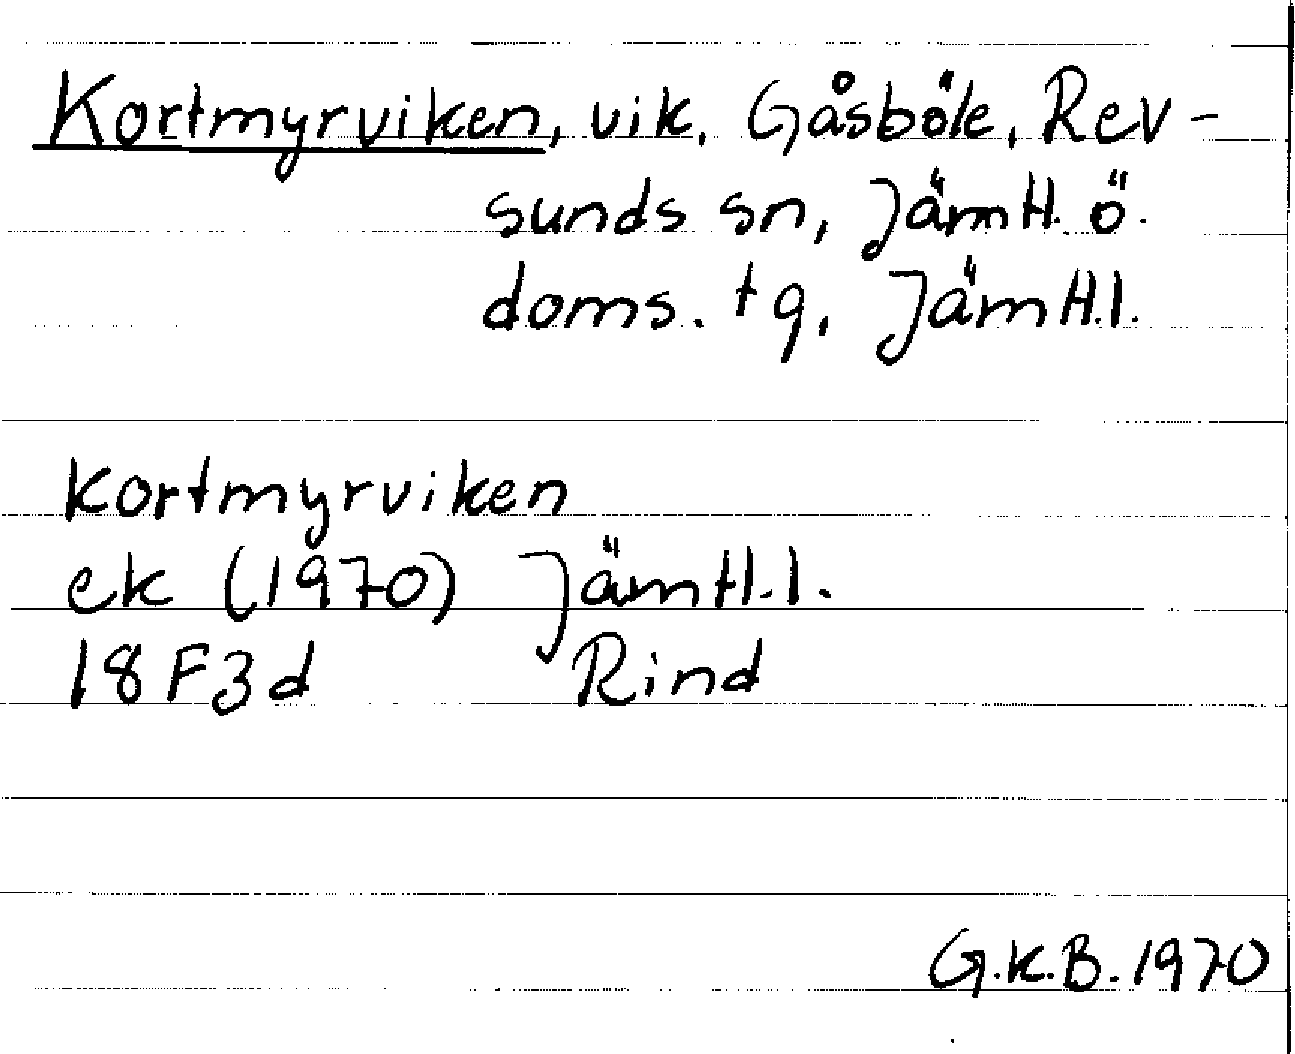 Kortmyrviken, vik, Gåsböle, Rev-
sunds sn, Jämtl. ö.
doms. tg, Jämtl.l.
Kortmyrviken
ek (1970) Jämtl.l.
18 F3d Rind
G.K.B. 1970